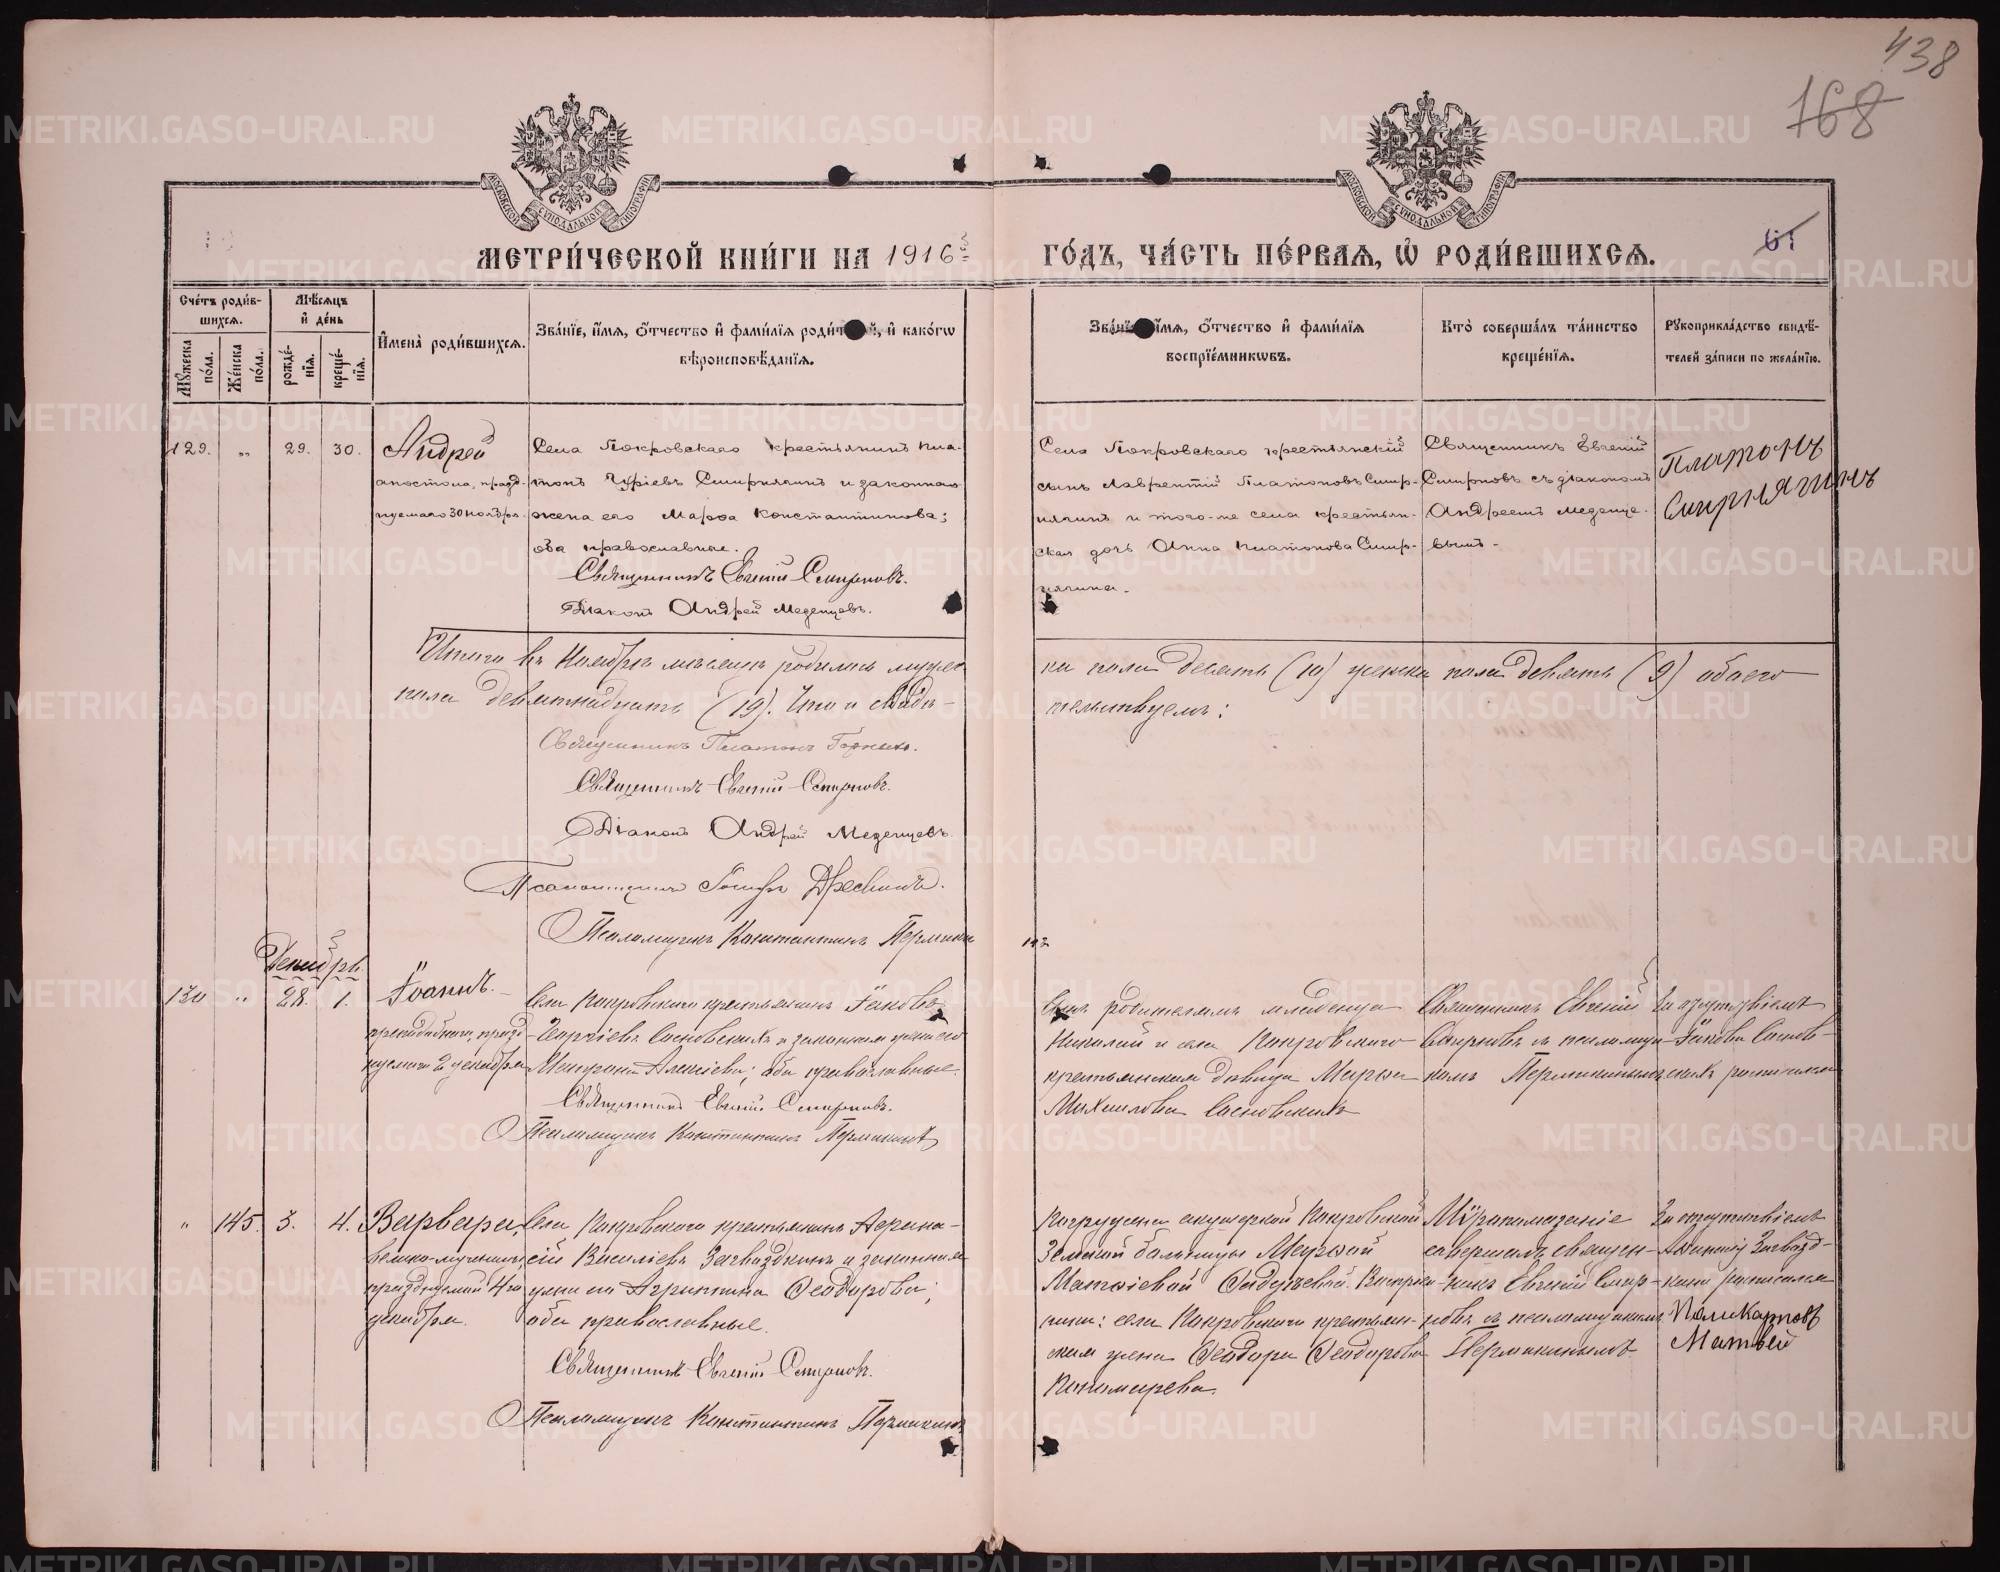 438
168
МЕТРИ́ЧЕСКОЙ КНИ́ГИ НА 1916й ГО́ДЪ, ЧА́СТЬ ПЕ́РВАѦ, Ѡ҆ РОДИ́ВШИХСѦ.
61
Сче́тъ роди́в-
шихсѧ.
Мѣ́сѧцъ
и҆ де́нь
И҆мена̀ роди́вшихсѧ.
Зва́нїе, и҆́мѧ, о҆́тчество и҆ фами́лїѧ роди́т й, и҆ како́гѡ
вѣроисповѣ́данїѧ.
Зва́нїе и҆́мѧ, о҆́тчество и҆ фами́лїѧ
воспрїе́мникѡвъ.
Кто̀ соверша́лъ та́инство
креще́нїѧ.
Рꙋкоприкла́дство свидѣ́-
телей за́писи по жела́нїю.
Мꙋ́жеска по́ла.
Же́нска по́ла.
рожде́-нїѧ.
креще́-нїѧ.
129. „ 29. 30.
Андрей
апостола, празд-
нуемаго 30 ноября
Села Покровскаго крестьянинъ Пла-
тонъ Гуріевъ Смирнягинъ и законная
жена его Марѳа Константинова;
оба православные.
Священникъ Евгеній Смирновъ.
Діаконъ Андрей Меденцевъ.
Села Покровскаго крестьянскій
сынъ Лаврентій Платоновъ Смир-
нягинъ и того-же села крестьян-
ская дочь Анна Платонова Смир-
нягина.
Священникъ Евгеній
Смирновъ съ діакономъ
Андреемъ Меденце-
вымъ.
Платонъ
Смирнягинъ
Итого въ Ноябрѣ мѣсяцѣ родилось мужес-
ка пола десять (10) женска пола девять (9) обоего
пола девятнадцать (19). Что и свидѣ-
тельствуемъ:
Священникъ Платонъ Горныхъ.
Священникъ Евгеній Смирновъ.
Діаконъ Андрей Меденцевъ.
Псаломщикъ
Псаломщикъ Константинъ Пермякинъ
Декабрь.
130 „ 28. 1.
Іоаннъ.
преподобнаго, празд-
нуемаго 2 декабря
Села Покровскаго крестьянинъ Іаковъ
Георгіевъ Сосновскихъ и законная жена его
Матрона Алексіева; оба православные.
Священникъ Евгеній Смирновъ.
Псаломщикъ Константинъ Пермякинъ
Сынъ родителямъ младенца
Николай и села Покровскаго
крестьянская дѣвица Марѳа
Михаилова Сосновскихъ
Священникъ Евгеній
Смирновъ съ псаломщи-
комъ Пермякинымъ
За
Іакова Соснов-
скихъ росписался
„ 145. 3. 4.
Варвара,
велико-мученицы,
празднуемой 4го
декабря.
Села Покровскаго крестьянинъ Аѳана-
сій Василіевъ Загвоздкинъ и законная
жена его Агриппина Ѳеодорова;
оба православные.
Священникъ Евгеній Смирновъ.
Псаломщикъ Константинъ Пермякинъ
Погружена акушеркой Покровской
Земской больницы Марѳой
Матѳіевой
села Покровскаго крестьян-
ская жена Ѳеодора Ѳеодорова
Пономарева.
Мѵропомазаніе
совершалъ священ-
никъ Евгеній Смир-
новъ съ псаломщикомъ
Пермякинымъ.
За
Загвозд-
кина росписался
Поликарповъ
Матвей